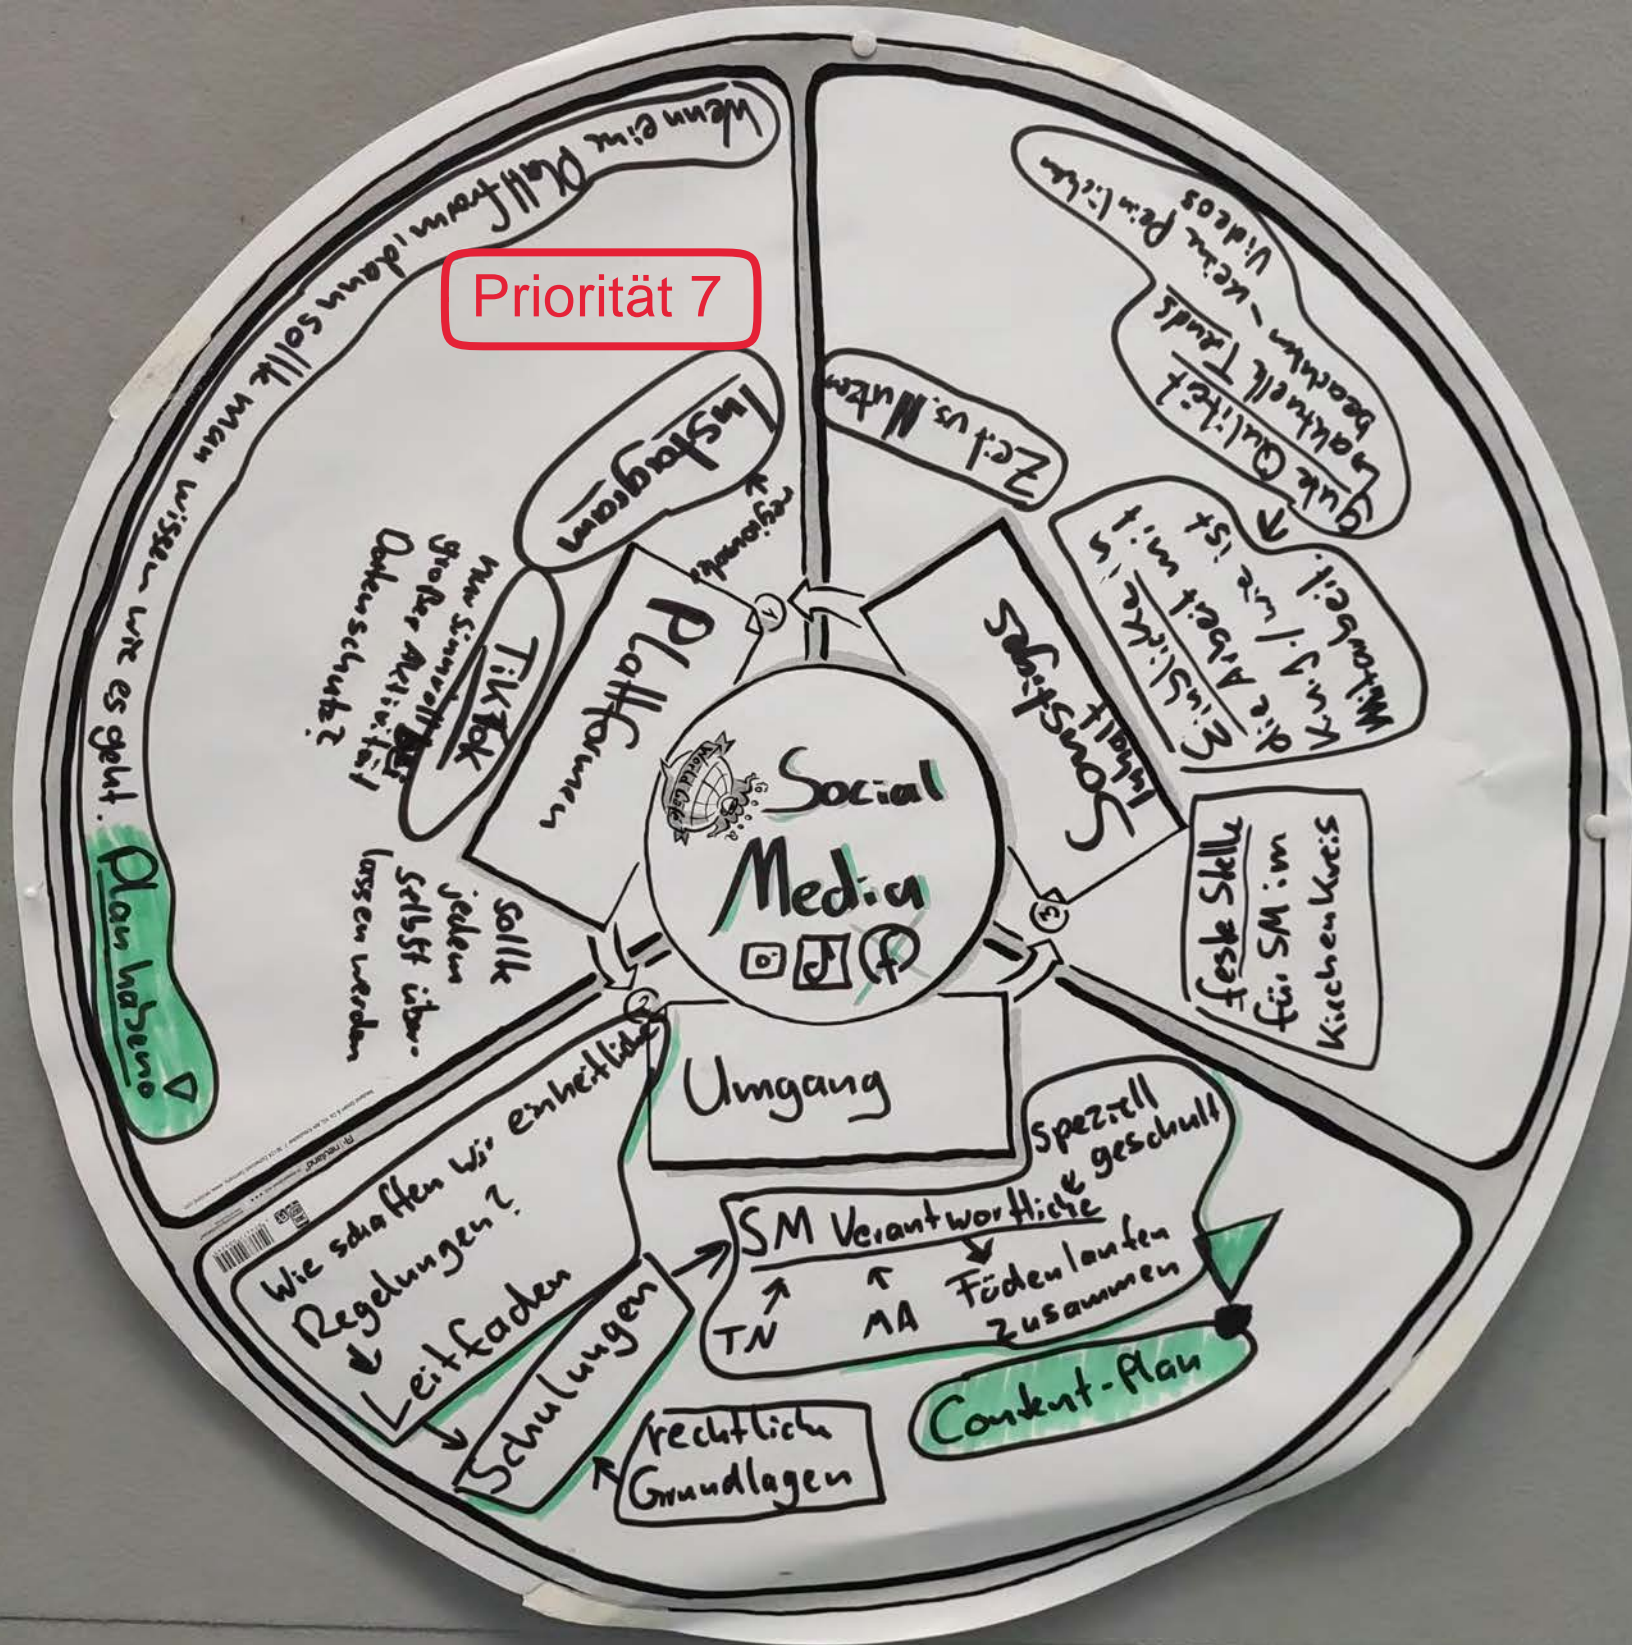 Priorität 7
Social
Media
World Café
Plattformen
1
Instagram
regionales
TikTok
nur sinnvoll bei
großer Aktivität
Datenschutz?
sollte
jedem
selbst über-
lassen werden
Wenn eine Plattfrom, dann sollte man wissen wie es geht.
Plan haben!
Umgang
2
Wie schaffen wir einheitliche
Regelungen?
Leitfaden
Schulungen
rechtliche
Grundlagen
speziell
geschult
SM Verantwortliche
TN
MA
Fäden laufen
zusammen
Content-Plan
Sonstiges
Inhalt
3
Zeit vs. Nutzen
gute Qualität
aktuelle Trends
beachten - keine peinlichen
Videos
Einblicke in
die Arbeit mit
K. u. J. / wie ist
Mitarbeit.
feste Stelle
für SM im
Kirchenkreis
neuland